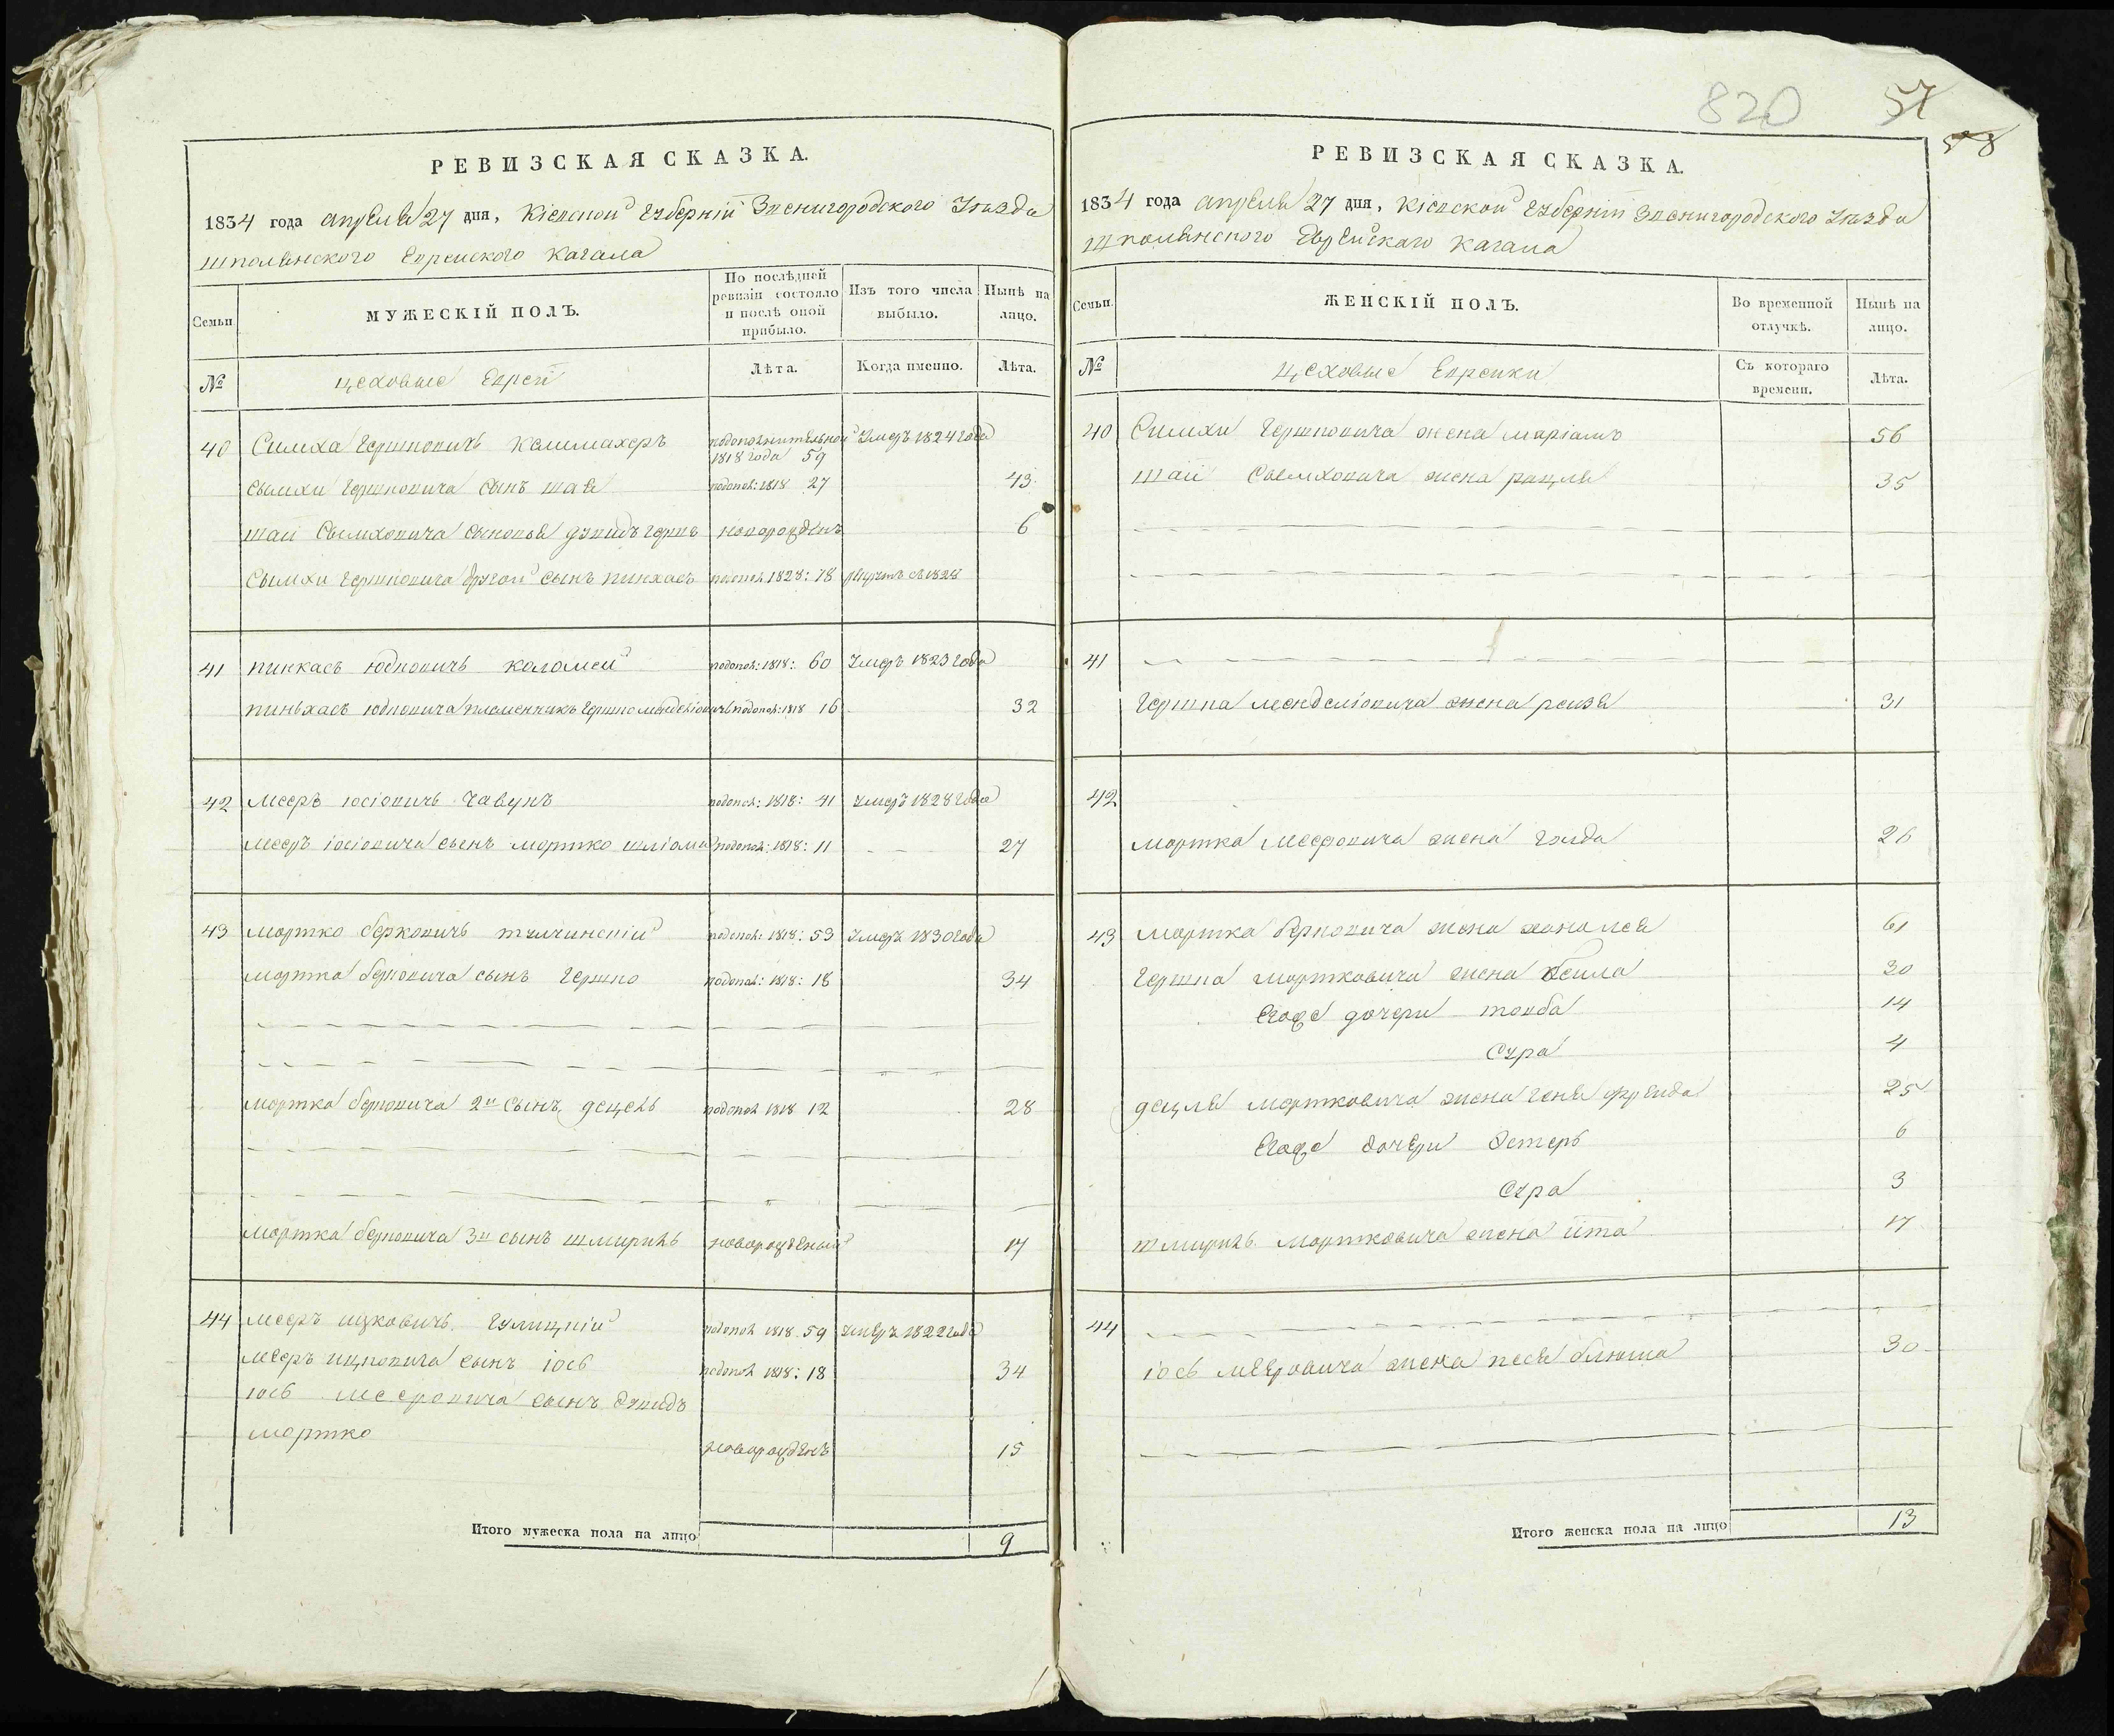 820 57
58
РЕВИЗСКАЯ СКАЗКА.
1834 года апреля 27 дня, Кіевской Губерніи Звенигородского Уѣзда
Шполянского Еврейского Кагала
Семьи
МУЖЕСКІЙ ПОЛЪ.
По послѣдней ревизіи состояло и послѣ оной прибыло.
Изъ того числа выбыло.
Нынѣ на лицо.
№
цеховые Евреи
Лѣта.
Когда именно.
Лѣта.
40 Симха Гершковичъ умеръ 1824 года
1818 года 59
Сымхи Гершковича сынъ Шая 1818 27 43
Шаи Сымховича сыновья новорожденъ 6
Сымхи Гершковича другой сынъ Пинхасъ
41 Пинхасъ Юдковичъ Коломей подопол: 1818: 60 умеръ 1823 года
Пинхасъ Юдковича племенникъ подопол: 1818 16 32
42 Мееръ Іосіовичъ Чавунъ подопол: 1818: 41 умеръ 1828 года
Мееръ Іосіовича сынъ Мортко Шліома подопол: 1818: 11 27
43 Мортко Берковичъ подопол: 1818: 53 умеръ 1830 года
Мортка Берковича сынъ Гершко подопол: 1818: 18 34
Мортка Берковича 2й сынъ Децель подопол 1818 12 28
Мортка Берковича 3й сынъ Шмириль новорожденый 17
44 Мееръ Ицковичъ подопол 1818 59 умеръ 1822 года
Мееръ Ицковича сынъ Іось подопол 1818: 18 34
Іось Мееровича сынъ Дэвидъ
Мортко новорожденъ 15
Итого мужеска пола на лицо 9
РЕВИЗСКАЯ СКАЗКА.
1834 года апреля 27 дня, Кіевской Губерніи Звенигородского Уѣзда
Шполянского Еврейскаго Кагала
Семьи.
ЖЕНСКІЙ ПОЛЪ.
Во временной отлучкѣ.
Нынѣ на лицо.
№
цеховые Еврейки
Съ котораго времени.
Лѣта.
40 Симхи Гершковича жена Маріамъ 56
Шаи Сымховича жена Рацля 35
41
Гершка Менделіовича жена Рейзя 31
42
Мортка Мееровича жена Голда 26
43 Мортка Берковича жена Хана Лея 61
Гершка Мортковича жена Бейла 30
Егоже дочери Товба 14
Сура 4
Децля Мортковича жена Геня Фрейда 25
Егоже дочери Эстеръ 6
Сура 3
Шмириль Мортковича жена Ита 17
44
Іось Мееровича жена Песя Блюма 30
Итого женска пола на лицо 13